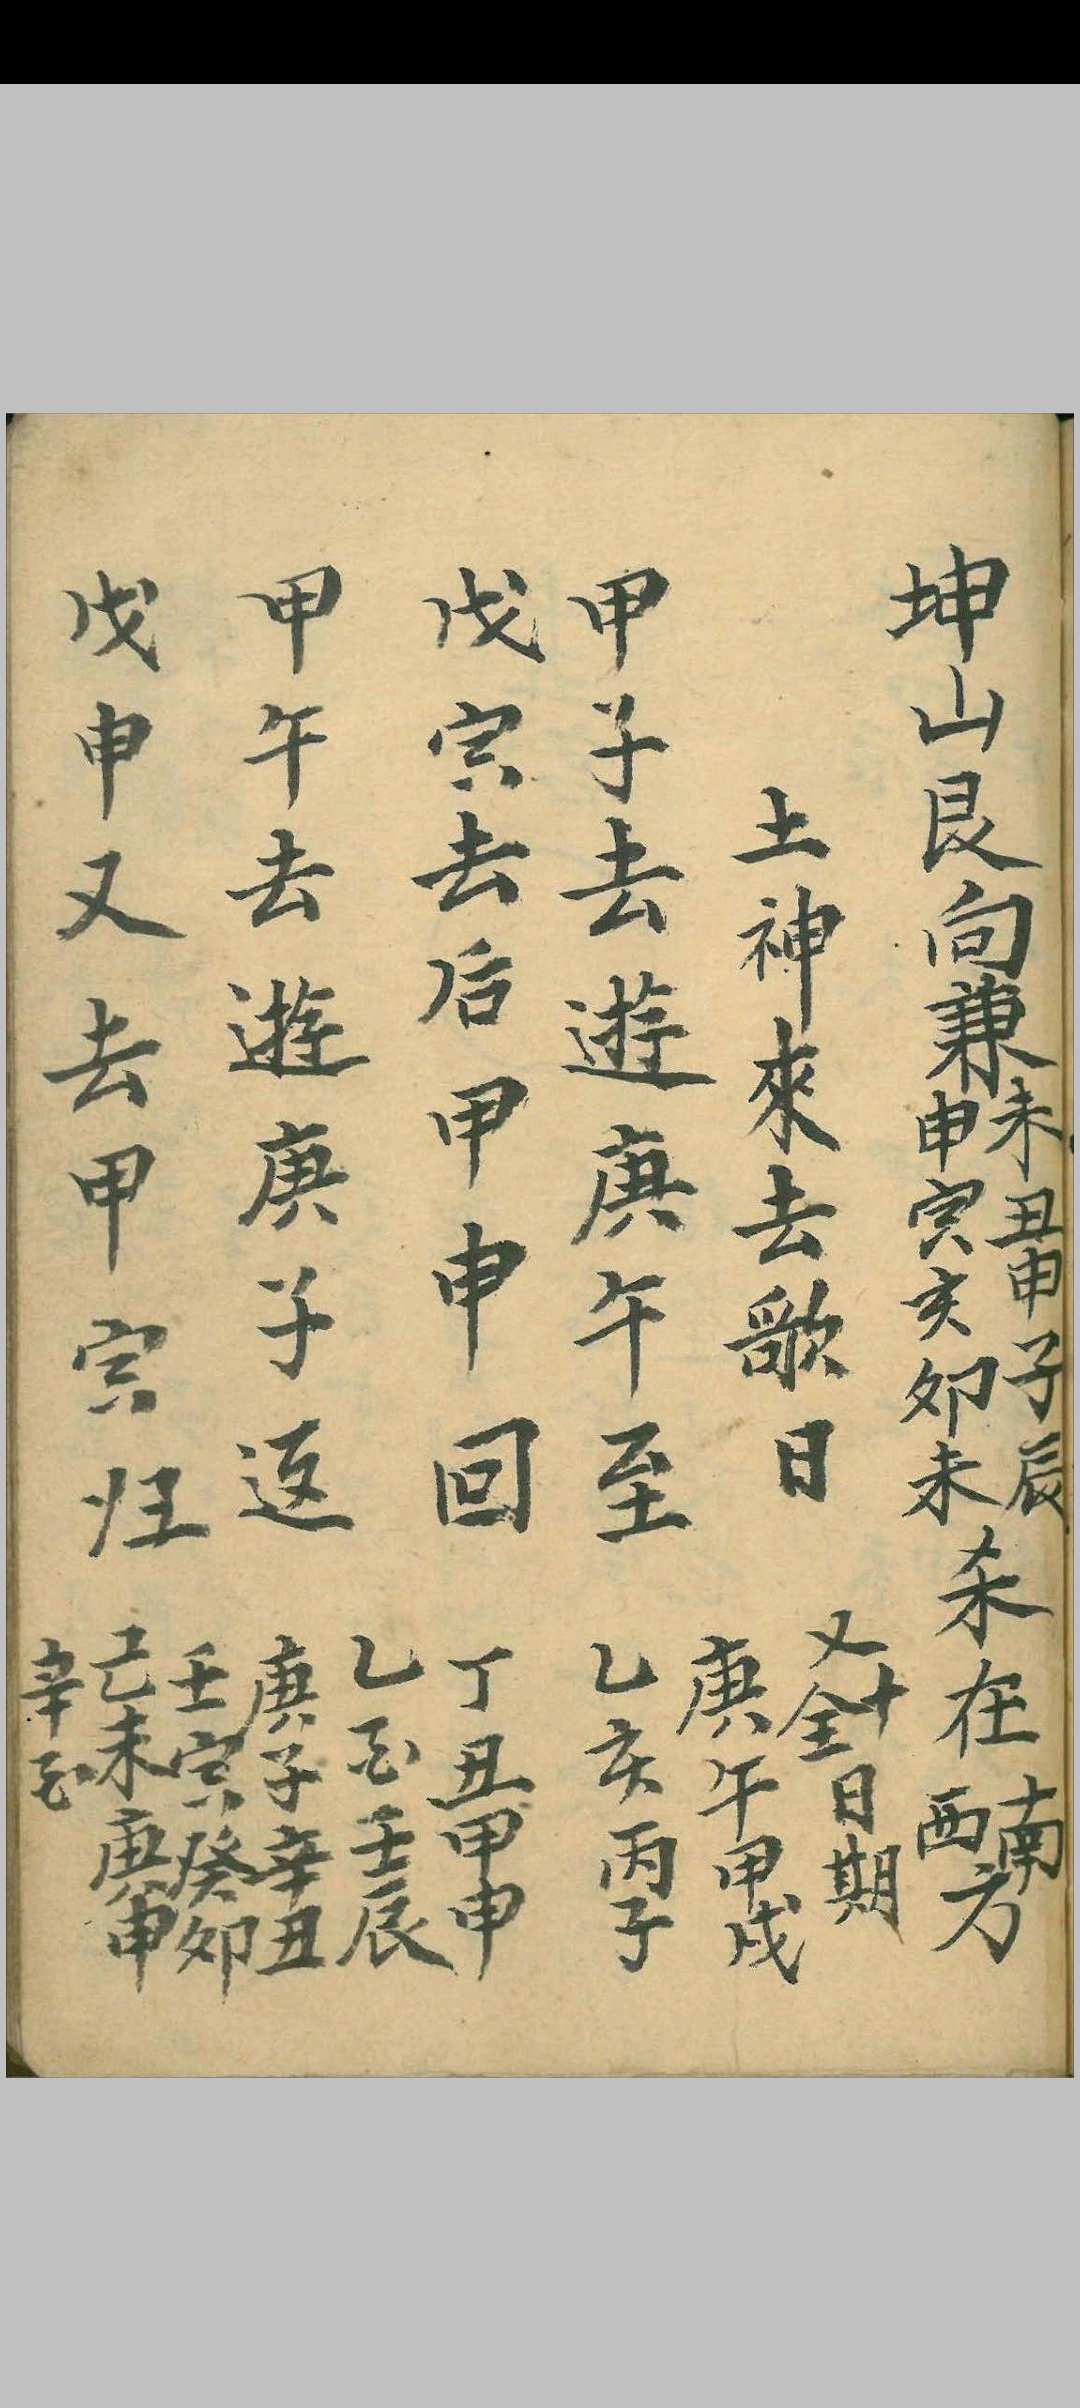 坤山艮向兼未丑申子辰申寅亥卯未杀在南西方
土神來去歌日
又十全日期
甲子去遊庚午至
庚午甲戌
乙亥丙子
戊寅去后甲申回
丁丑甲申
甲午去遊庚子返
乙酉壬辰
庚子辛丑
戊申又去甲寅归
壬寅癸卯
己未庚申
辛酉